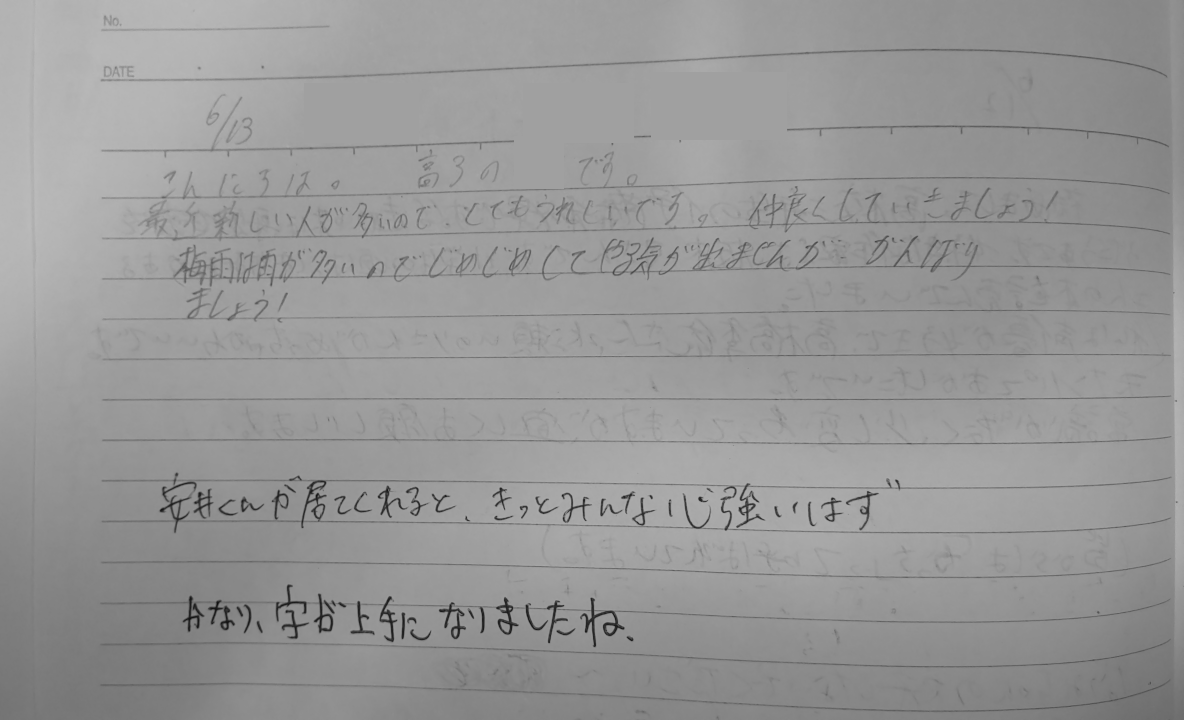 No.
DATE
6/13
こんにちは。 高3の です。
最近新しい人が多いので、とてもうれしいです。 仲良くしていきましょう!
梅雨は雨が多いのでじめじめしてやる気が出ませんが… がんばり
ましょう!
安井くんが居てくれると、きっとみんな心強いはず
かなり、字が上手になりましたね、